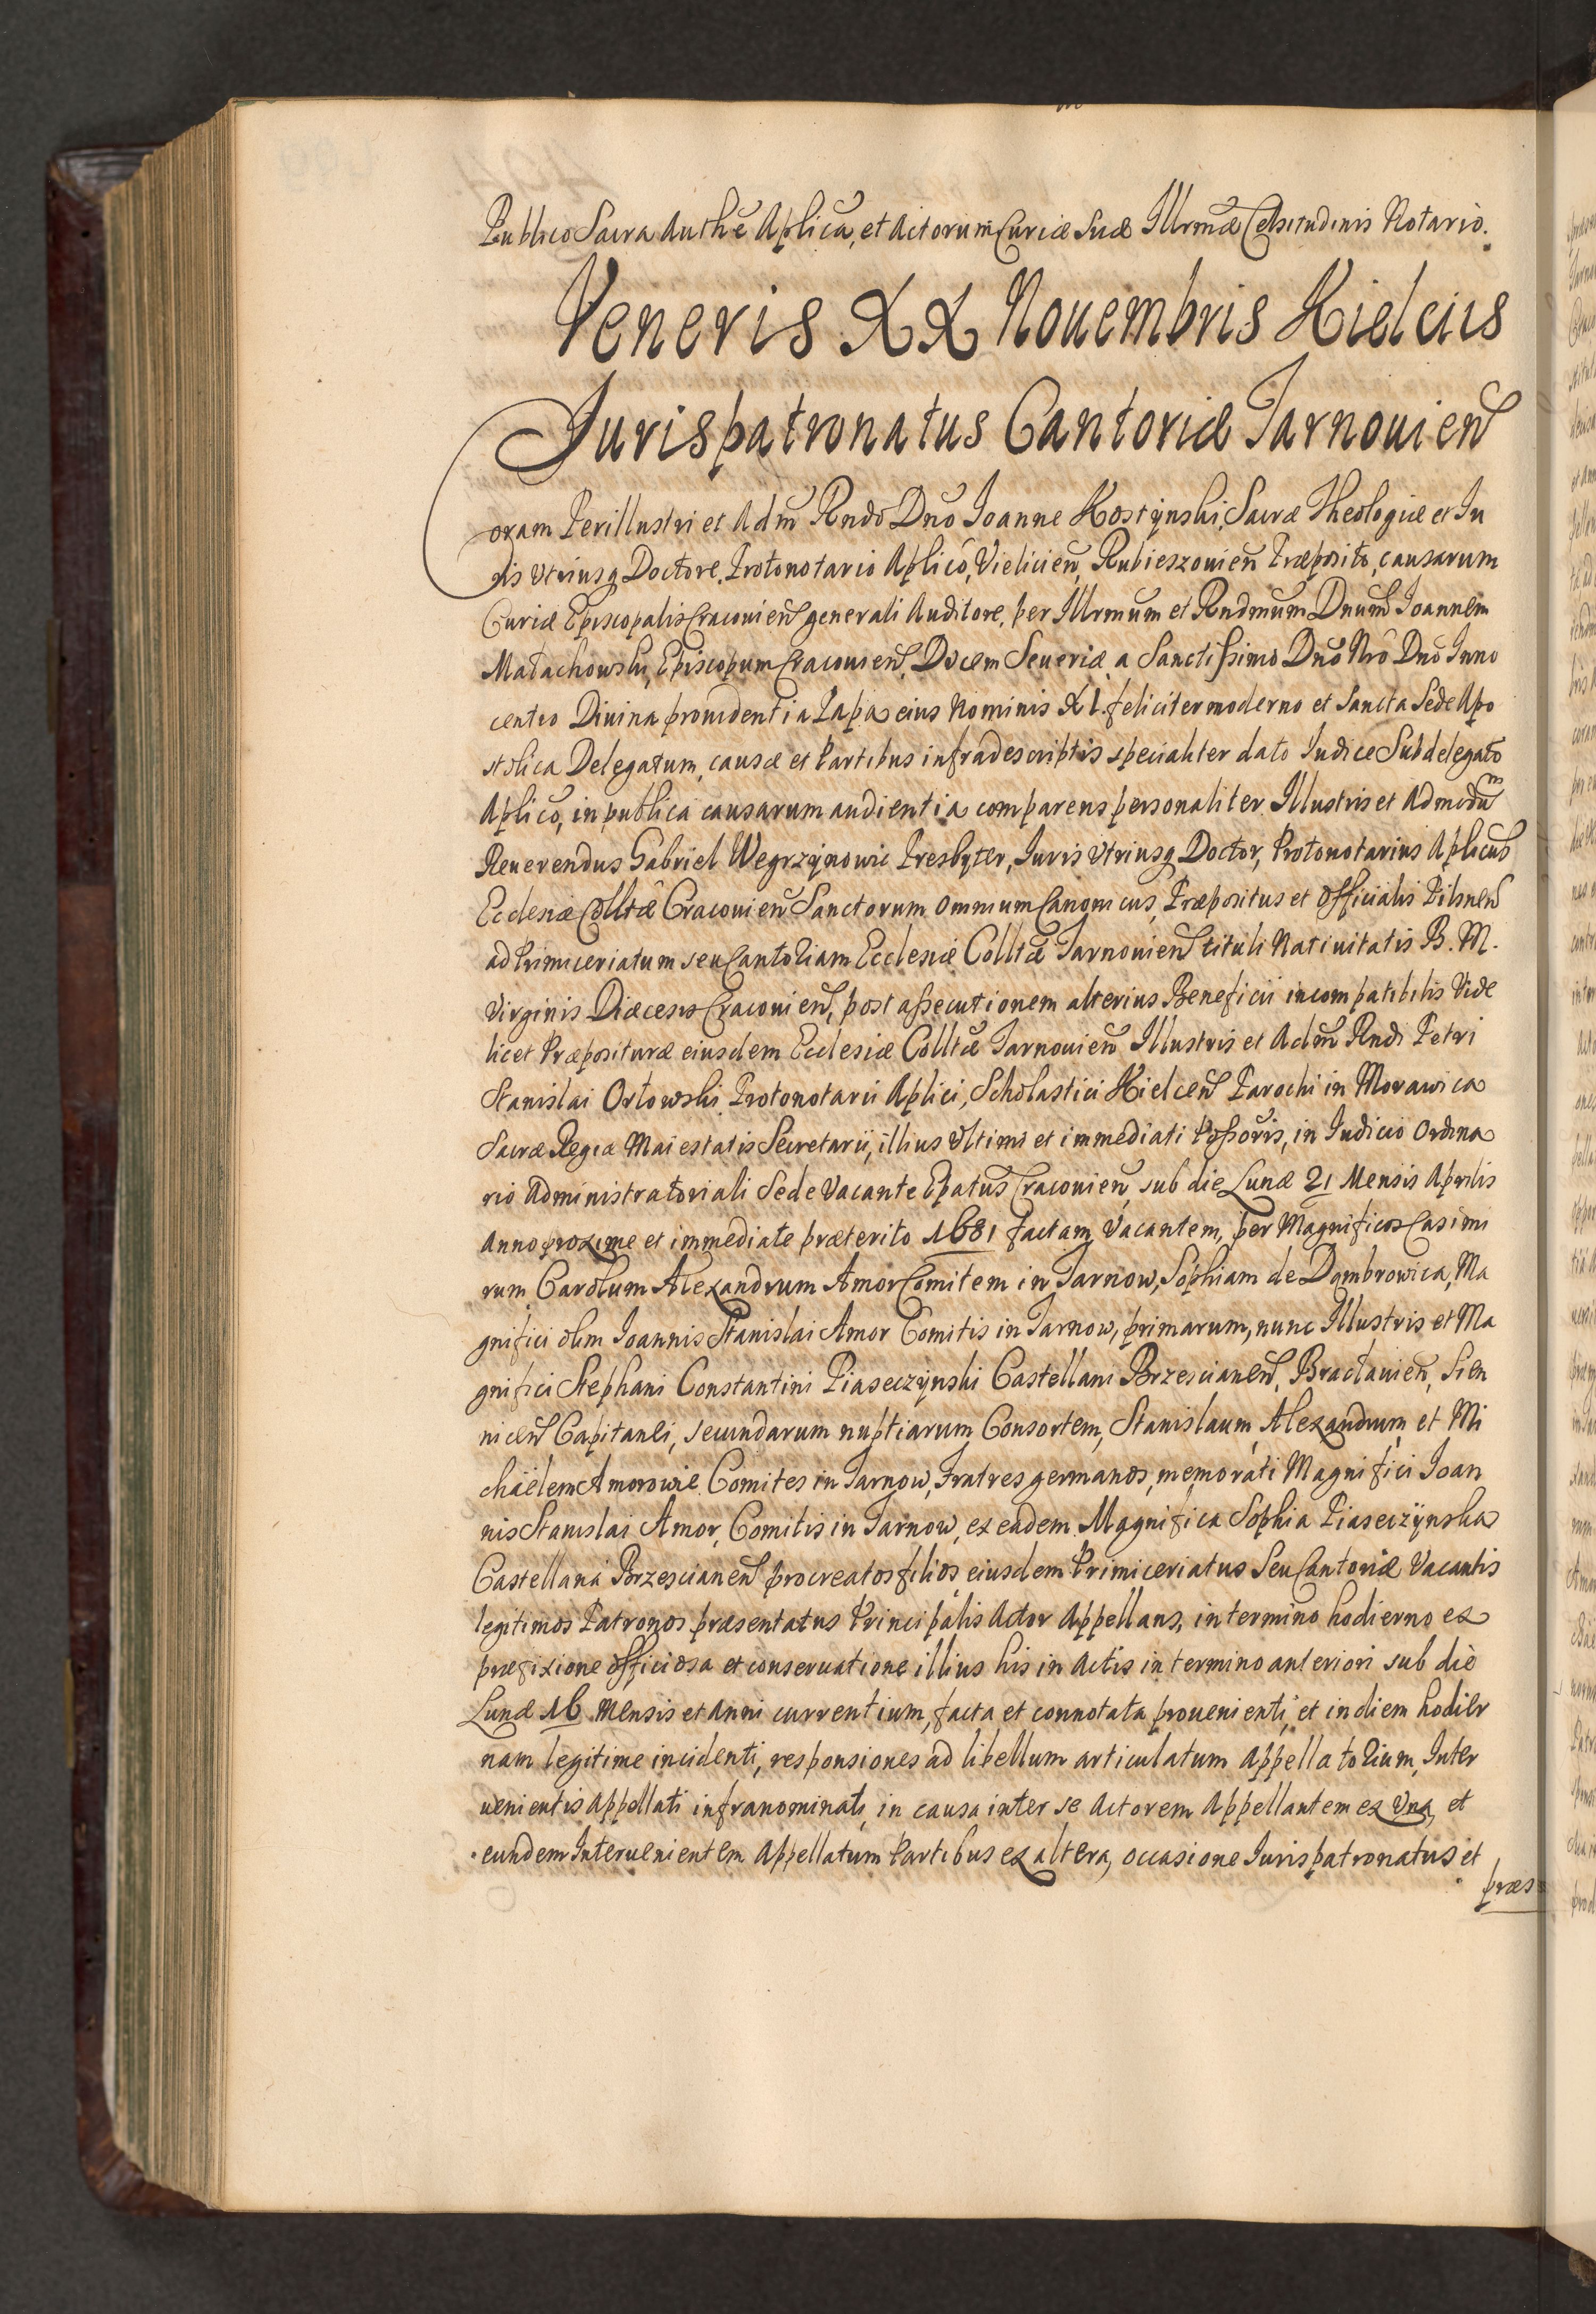 Publico Sacra Authẽ Aplica, et Actorum Curiæ Suæ Illrmæ Celsitudinis Notario.
Veneris XX Nouembris Kielciis
Jurispatronatus Cantoriæ Tarnouien
Coram Perillustri et Adm Rndo Dno Ioanne Kostynski, Sacræ Theologiæ et Iu
ris Vtriusq Doctore, Protonotario Aplico, Vielicien, Rubieszouien Præposito, causarum
Curiæ Episcopalis Cracouien generali Auditore, per Illrmum et Rndmum Dnum Ioannem
Małachowski, Episcopum Cracouien, Ducem Seueriæ a Sanctissimo Dno Nro Dno Inno
centio Diuina prouidentia Papa eius Nominis XI. feliciter moderno et Sancta Sede Apo
stolica Delegatum, causæ et Partibus infradescriptis specialiter dato Iudice Subdelegato
Aplico, in publica causarum audientia comparens personaliter Illustris et Admodum
Reuerendus Gabriel Wegrzynowic Presbyter, Iuris Vtriusq Doctor, Protonotarius Aplicus
Ecclesiæ Colltæ Cracouien Sanctorum omnium Canonicus, Præpositus et Officialis Pilsnen
ad Primiceriatum seu Cantoriam Ecclesiæ Colltæ Tarnouien tituli Natiuitatis B. M.
Virginis Diæcesis Cracouien, post assecutionem alterius Beneficii incompatibilis Vide
licet Præposituræ eiusdem Ecclesiæ Colltæ Tarnouien Illustris et Adm Rndi Petri
Stanislai Orłowski Protonotarii Aplici, Scholastici Kielcen Parochi in Morawica
Sacræ Regiæ Maiestatis Secretarii, illius Vltimi et immediati Possoris, in Iudicio Ordina
rio Administratoriali Sede Vacante Epatus Cracouien, sub die Lunæ 21 Mensis Aprilis
Anno proxime et immediate præterito 1681 factam Vacantem, per Magnificos Casimi
rum Carolum Alexandrum Amor Comitem in Tarnow, Sophiam de Dombrowica, Ma
gnifici olim Ioannis Stanislai Amor Comitis in Tarnow, primarum, nunc Illustris et Ma
gnifici Stephani Constantini Piaseczynski Castellani Brzescianen, Bractauien, Sien
nicen Capitanei, secundarum nuptiarum Consortem, Stanislaum, Alexandrum et Mi
chaëlem Amorowie Comites in Tarnow, Fratres germanos, memorati Magnifici Ioan
nis Stanislai Amor, Comitis in Tarnow, ex eadem Magnifica Sophia Piaseczynska
Castellana Brzescianen procreatos filios, eiusdem Primiceriatus Seu Cantoriæ Vacantis
legitimos Patronos præsentatus Principalis Actor Appellans, in termino hodierno ex
præfixione officiosa et conseruatione illius his in Actis in termino anteriori sub die
Lunæ 16 Mensis et Anni currentium, facta et connotata prouenienti, et in diem hodier
nam legitime incidenti, responsiones ad libellum articulatum Appellatorium, Inter
uenientis Appellati infranominati, in causa inter se Actorem Appellantem ex Vna, et
eundem Interuenientem Appellatum Partibus ex altera, occasione Iurispatronatus et
præs